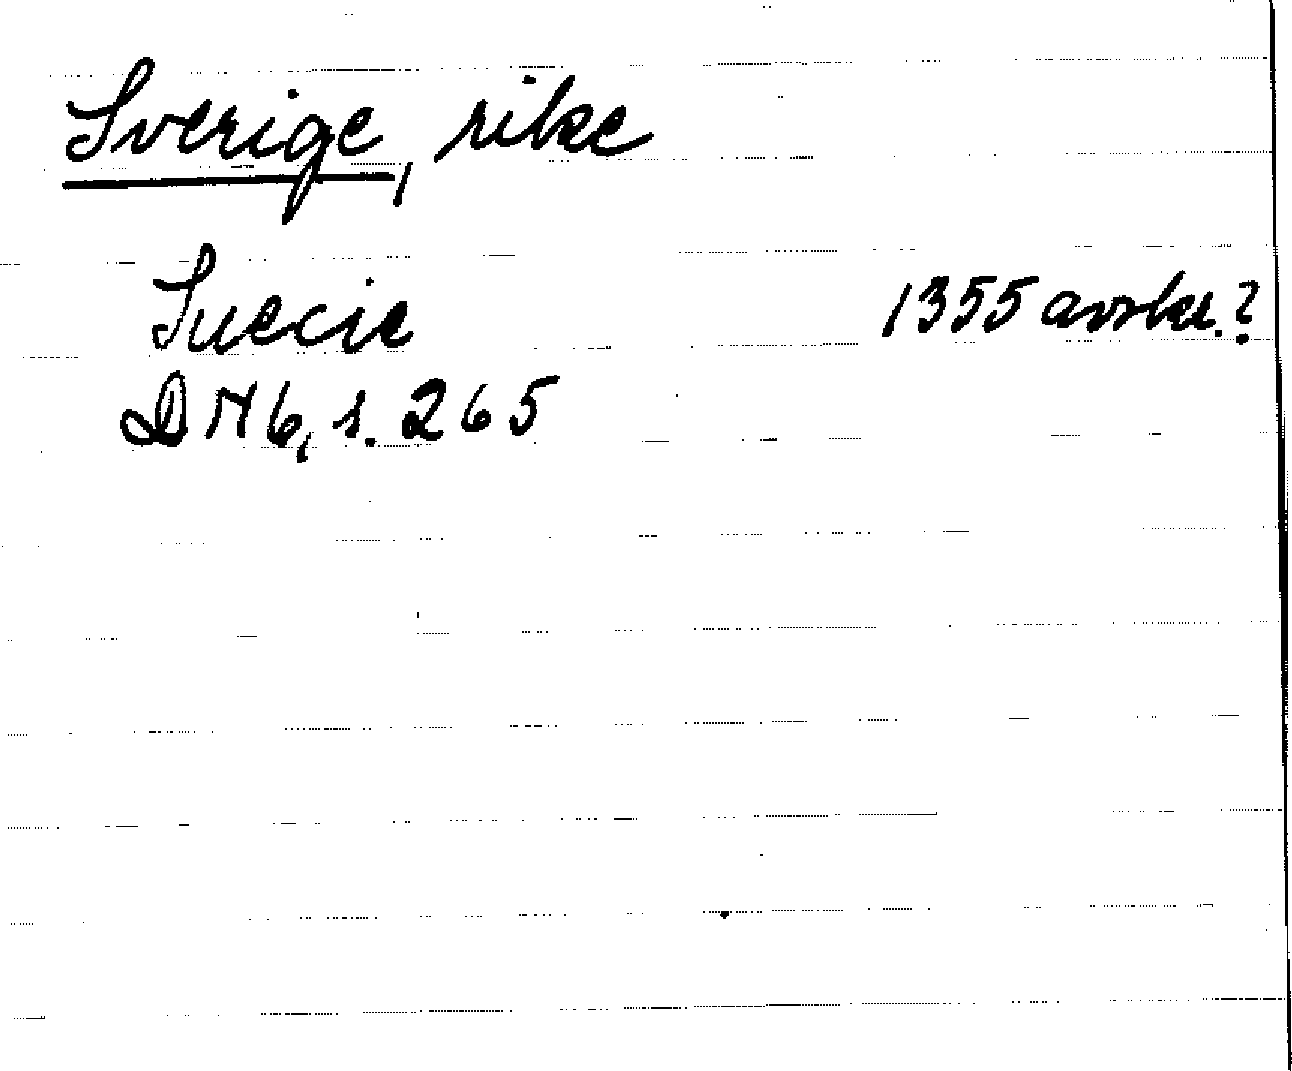 Sverige, rike
Suecie 1355 avskr.?
DN 6, s. 265